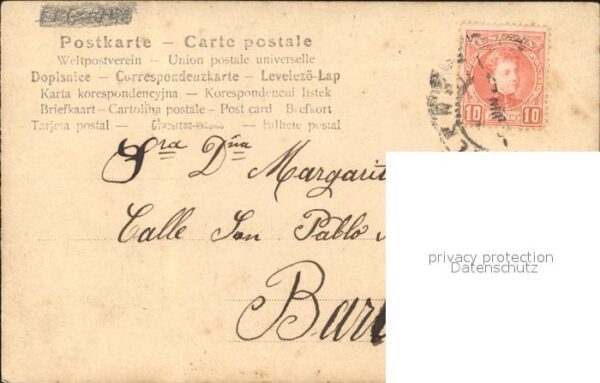 Postkarte – Carte postale
Weltpostverein – Union postale universelle
Dopisnice – Correspondenzkarte – Levelező-Lap
Karta korespondencyjna – Korespondencni listek
Briefkaart – Cartolina postale – Post card – Brefkort
Tarjeta postal – – Bilhete postal
10 10
Sra Dña Margarit
Calle San Pablo
Bar
privacy protection
Datenschutz